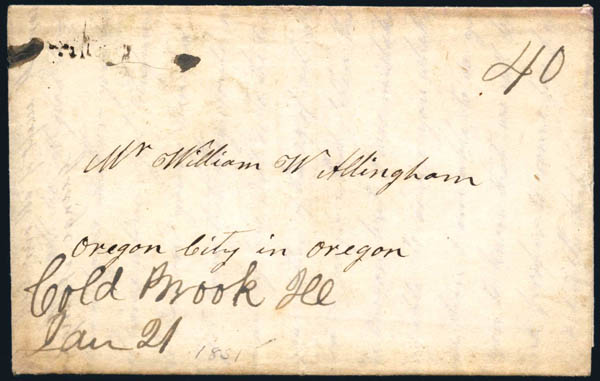 40
Mr William W Allingham
Oregon City in Oregon
Cold Brook Ill
Jan 21
1851